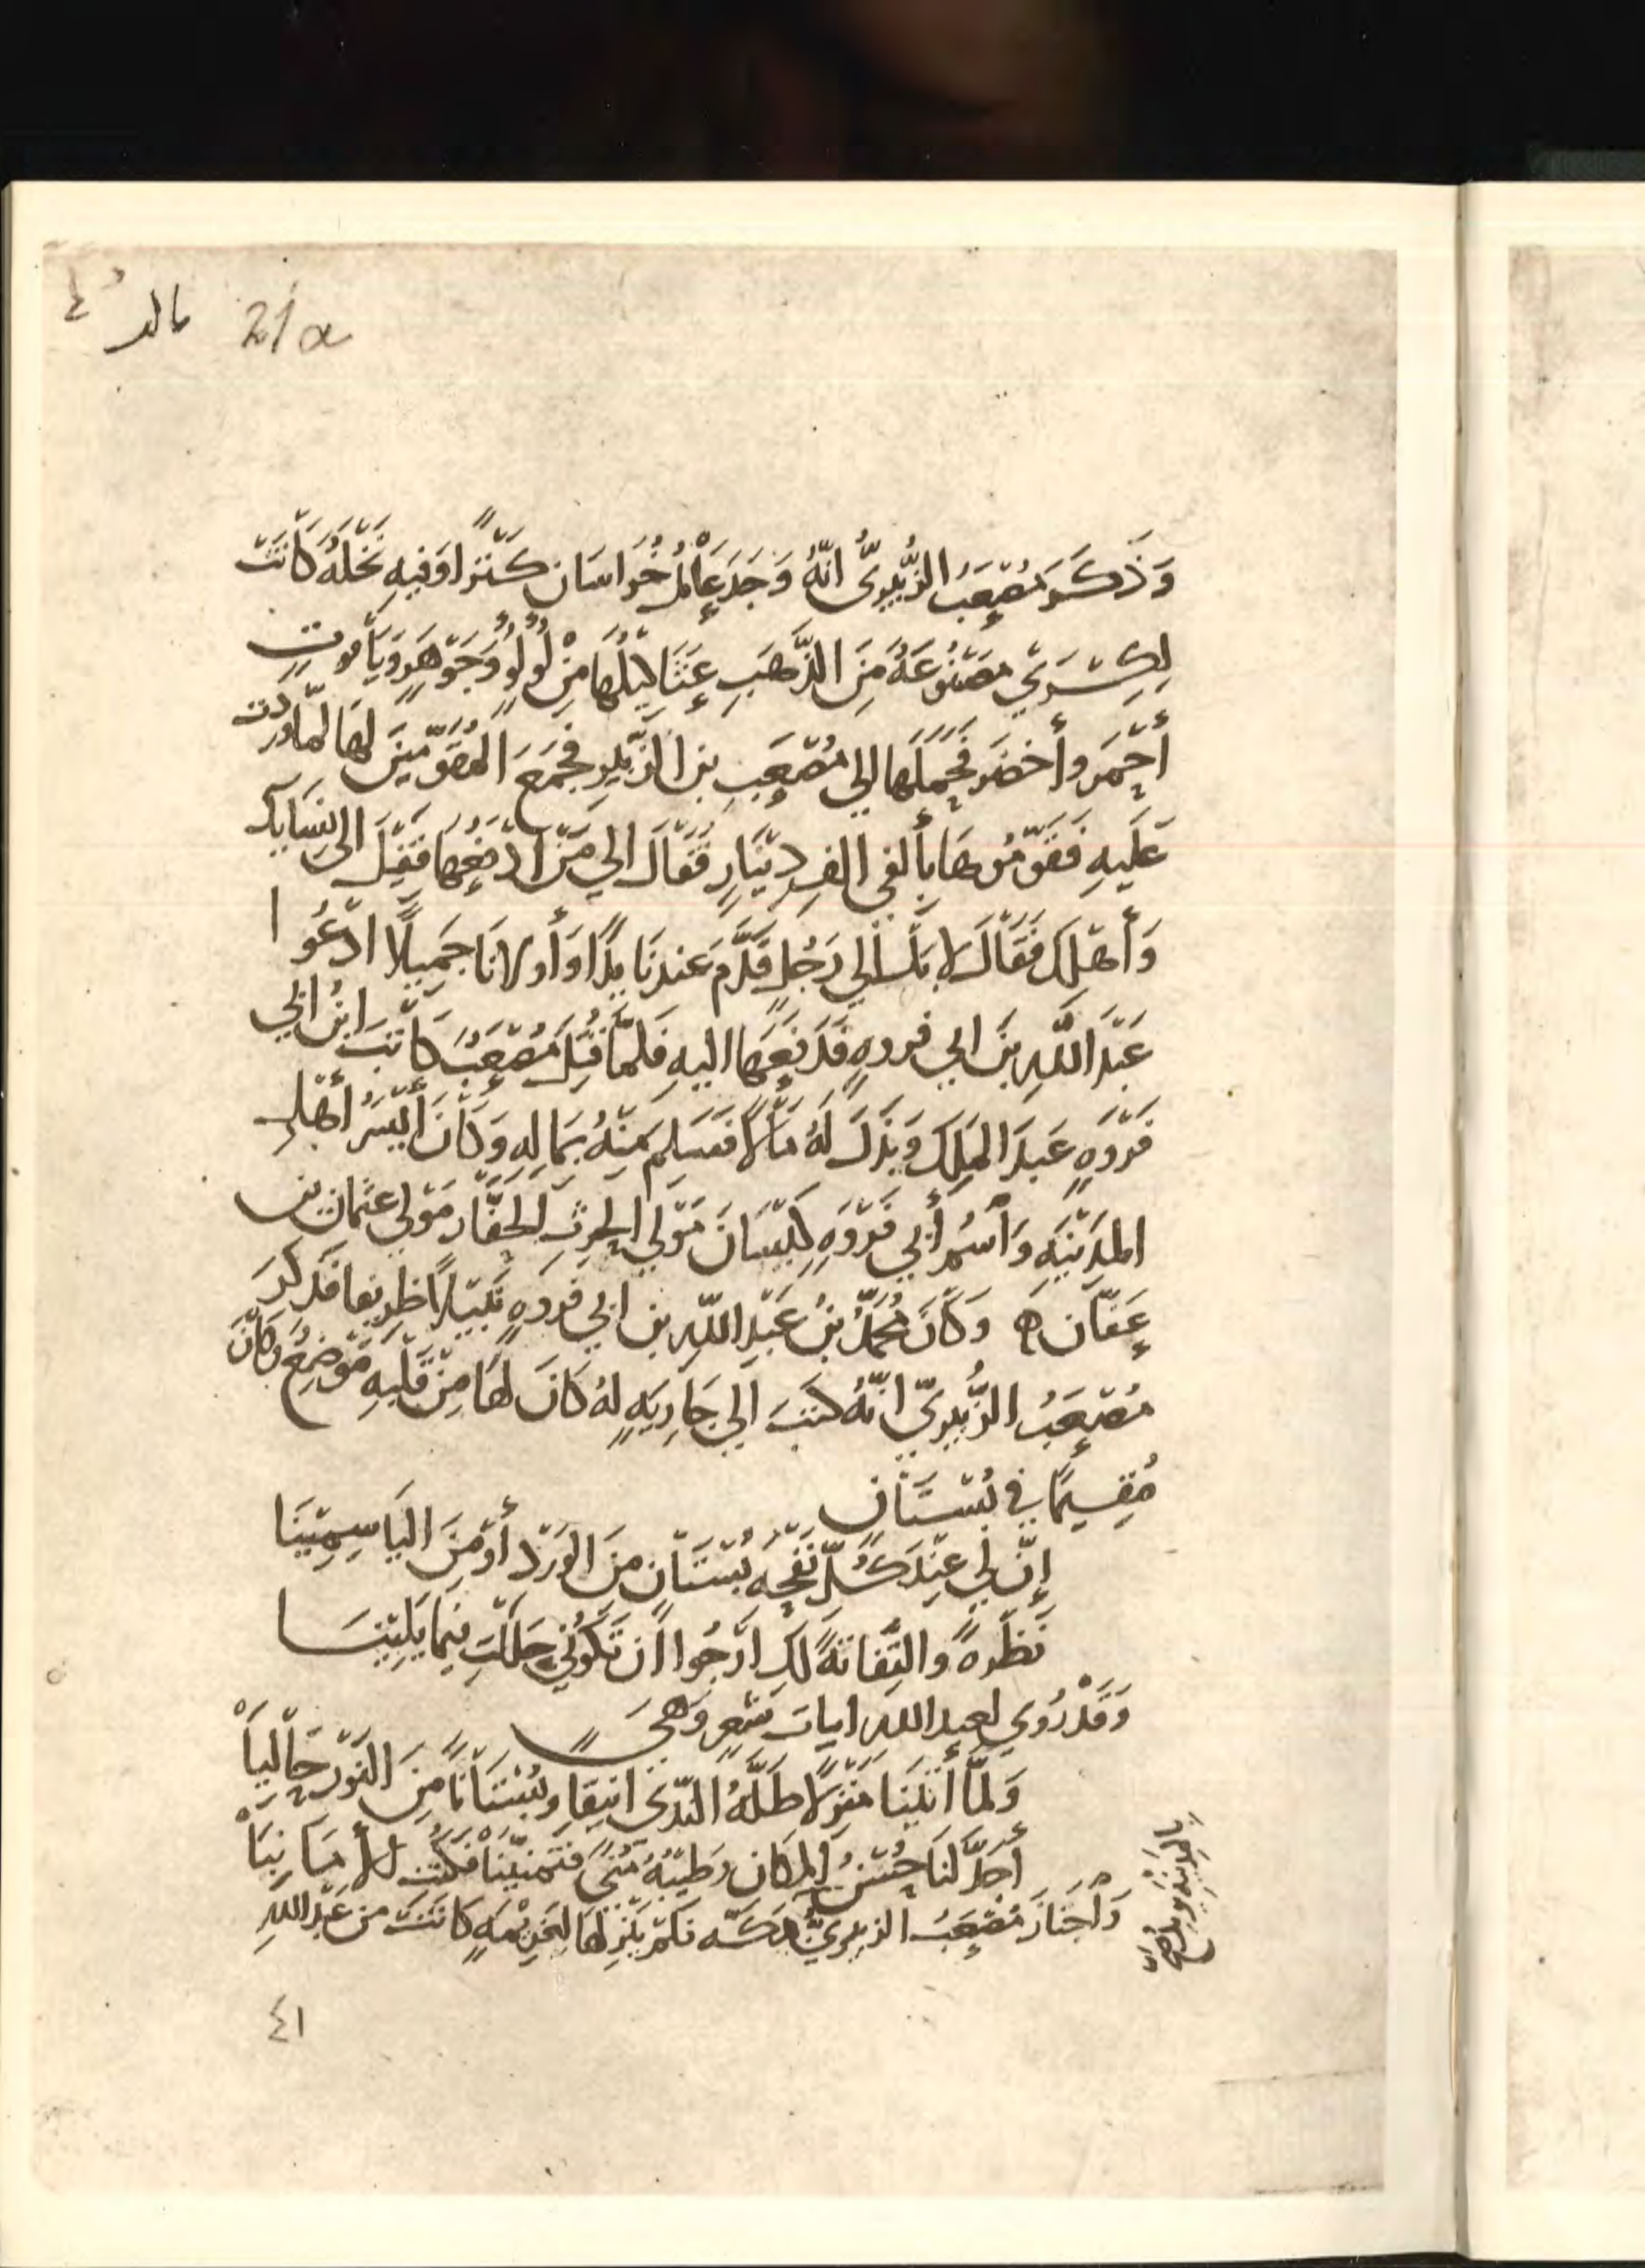 21a
وَذَكَرَ مُصْعَبُ الزُّبيريُّ انّهُ وَجَدَ عَامْلُ خُرَاسَان كَنْزًا وَفيهِ نَخْلَةُ كَانَتْ
لِكِسْرَي مَصْنُوعَةً مِنَ الذَّهَبِ عَثَاكِيلُهَا مِنْ لُولُوٍ وَجَوْهَرٍ وَيَاقوتٍ
أَحْمَرَ وأَخضَر فحَمَلَهَا الي مُصْعَبِ بن الزّبَيرِ فجَمَعَ المُقَوّمينَ لهَا لمّا وردت
عَلَيهِ فَقَوّمُوهَا بأَلفي الفِ دِيْنَارٍ فَقَالَ الي مَنْ ادْفعُهَا فقيل الى نسَايك
وَأَهْلِكَ فَقَالَ لا بَلْ الي رَجُلٍ قَدَّمَ عندنَا يدًا وَأَولانَا جَمِيلًا ادْعُوا
عَبْدَ اللَّهِ بنَ ابي فروهٍ فَدَفَعَهَا اليهِ فلمّا قُتِلَ مُصْعَبُ كَاتَبَ ابنُ ابي
فَرْوَهٍ عَبدَ المَلِكَ وَبَذَلَ لَهُ مَالًا فسَلِمَ مِنْهُ بمَالِهِ وَكَانَ أَيْسَرُ أَهْلِ
المَدِيْنَهِ وَاسْمُ أَبي فَرْوَهِ كَيْسَانَ مَوْلي الحرثِ الحَفّار مَوْلي عثمان بن
عَفّان ه وَكَانَ مُحمَّدُ بنُ عَبْدِ اللّهِ بن ابي فروهٍ نَبيْلًا ظريفا فذكرَ
مُصْعَبُ الزُّبَيريّ انّهُ كتبَ الي جَارِيَهٍ لهُ كَانَ لهَا مِنْ قَلْبهِ مَوْضعُ وكَانَ
مُقِيمًا في بُسْتَانٍ
إنّ لي عِنْدَ كُلّ نَفْحَه بُسْتَانٍ مِنَ الوَرْد أَوْ مِنَ اليَاسِمِيْنَا
نَظرَهً والتِفَاتَةً لَكِ ارْجُوا أن تَكُوني حلَلْتِ فيمَا يَلِيْنَا
وَقَدْ رُوي لعبد الله ابيات شعرٍ وَهيَ
وَلمَّا أتيْنَا مَنْزِلًا طَلَّهُ النّدَى انيقا وبُسْتَانًا مِنَ النّوْرِ حَالِيَا
أَجدَّ لَنَا حُسْنُ المكَان وَطِيْبُهُ مُنىً فتمَنّيْنَا فكُنْت الأمَانِيَا
وَاجتَازَ مُصْعَبُ الزبيريُّ كانَتْ من عَبْد اللهِ
٤١